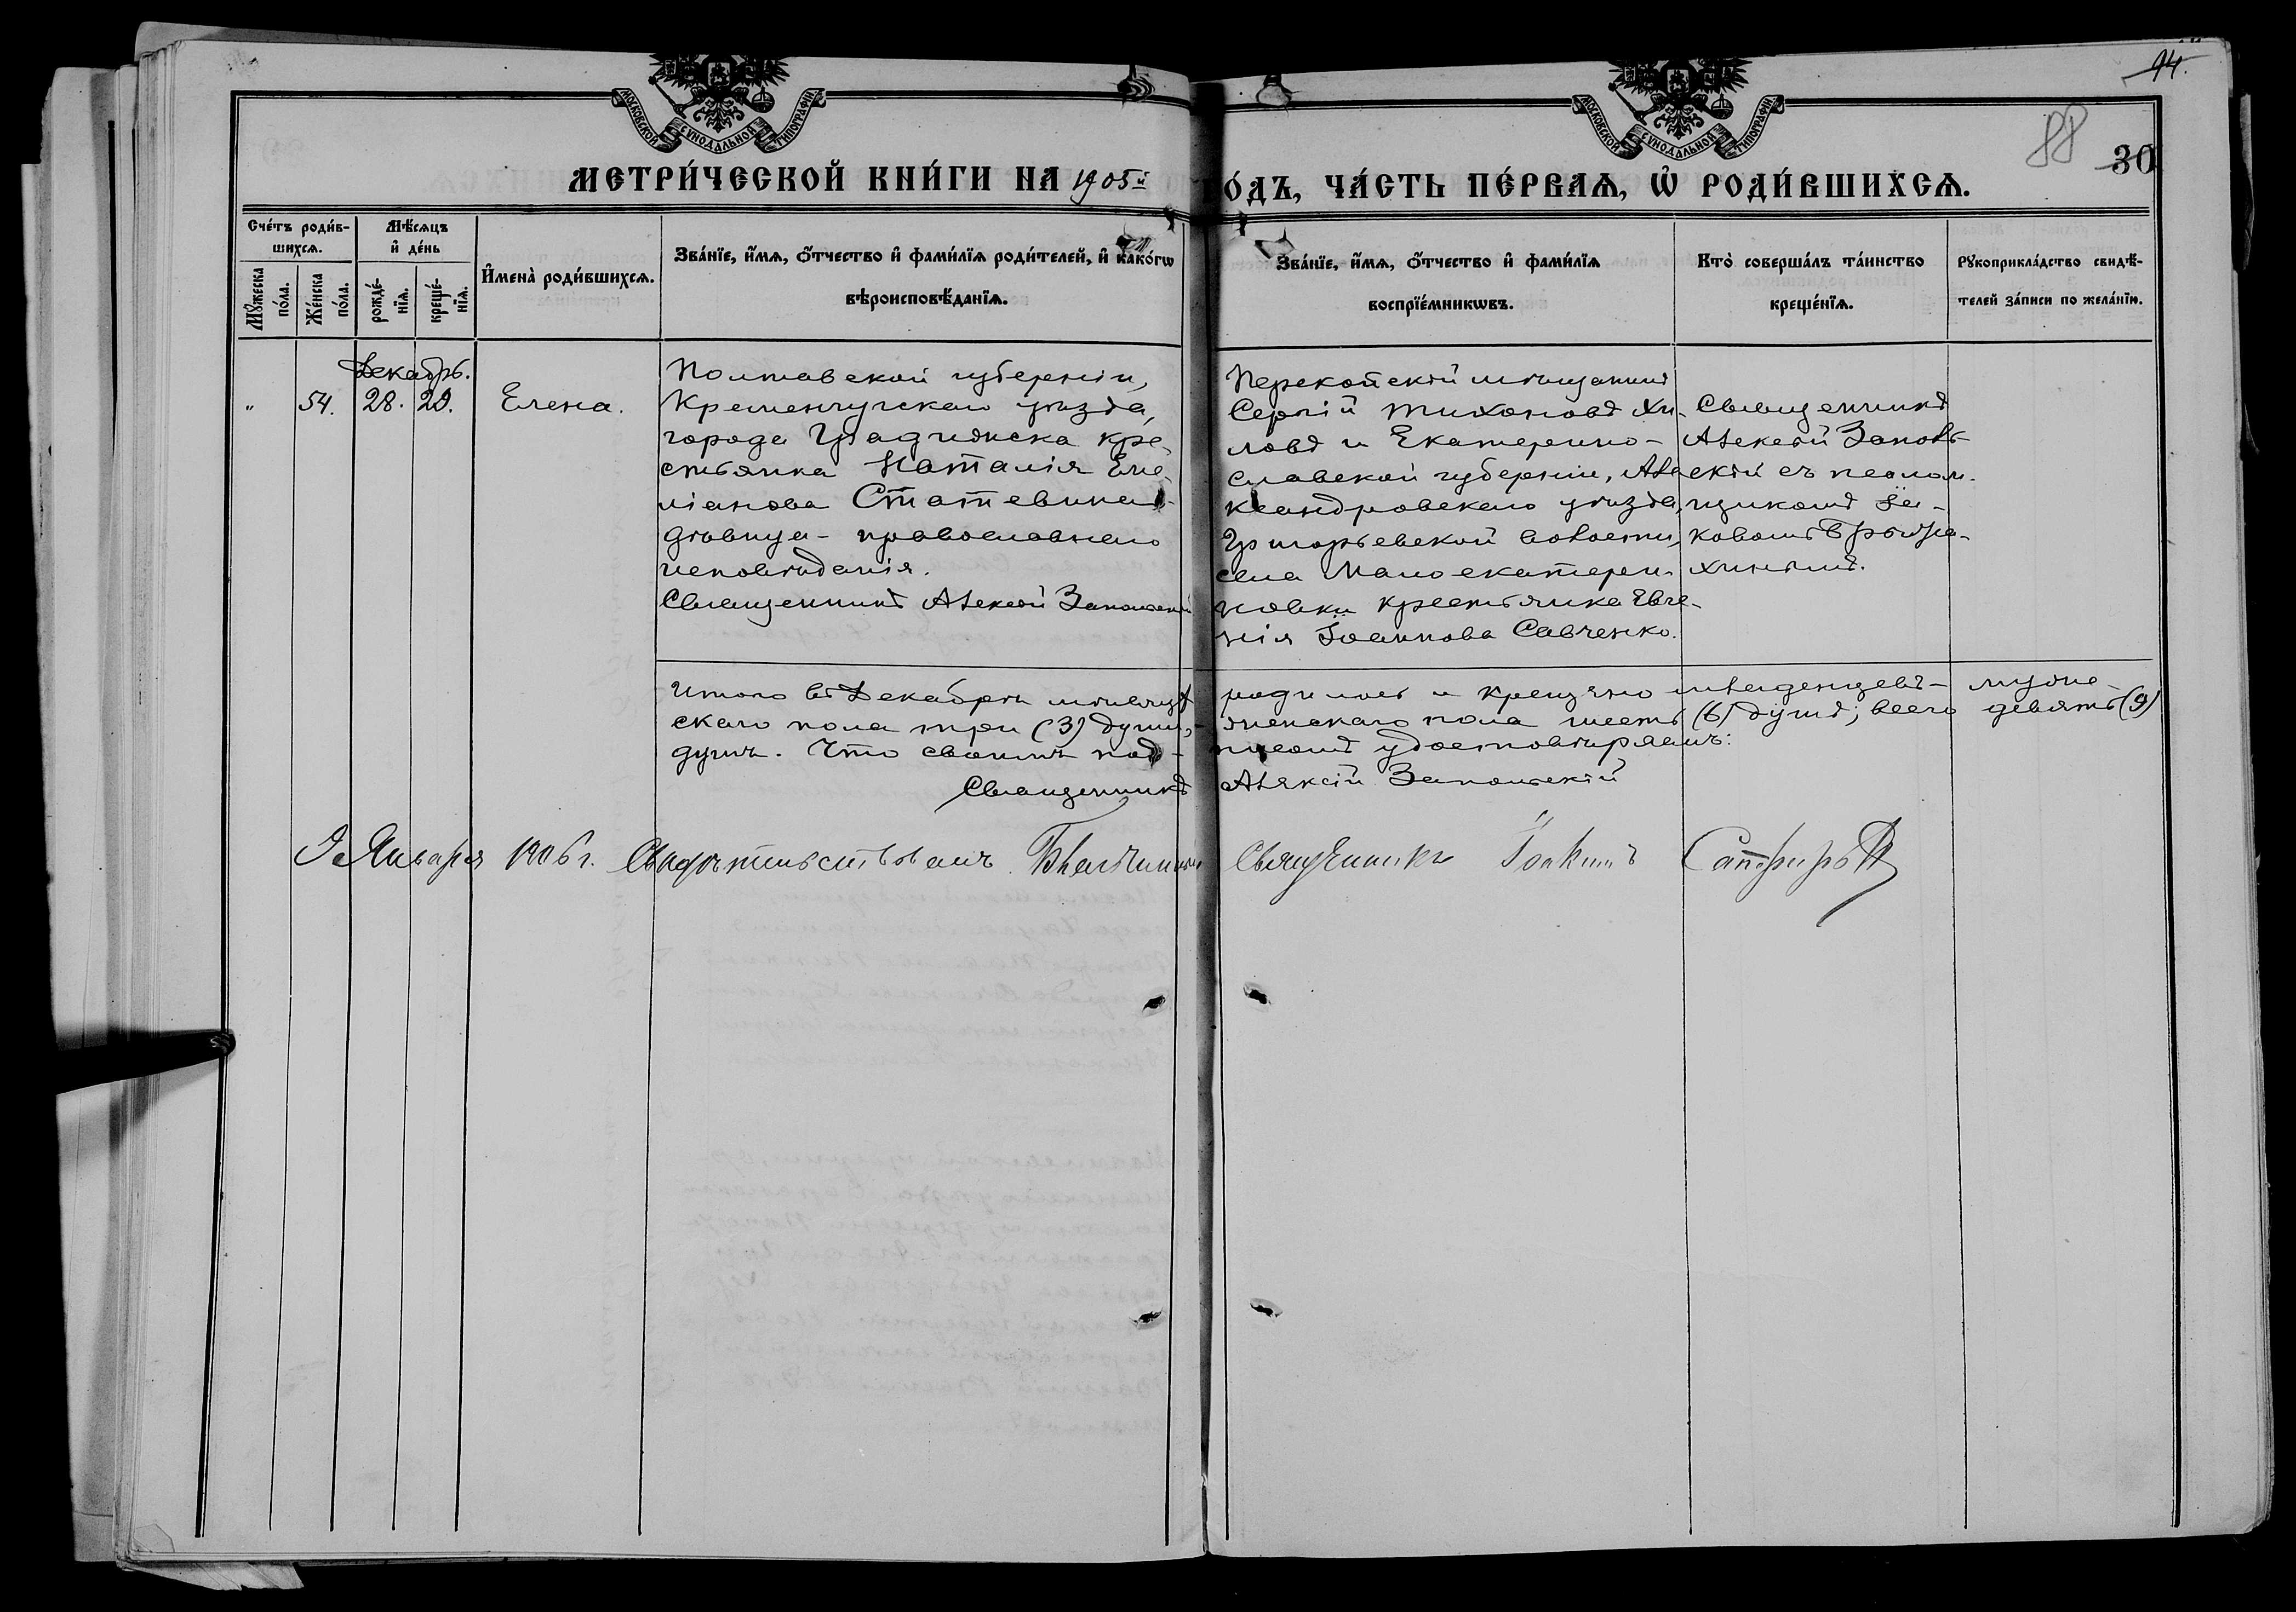 14.
88
30
МОСКОВСКОЙ СѴНОДАЛЬНОЙ ТИПОГРАФІИ
МОСКОВСКОЙ СѴНОДАЛЬНОЙ ТИПОГРАФІИ
МЕТРИ́ЧЕСКОЙ КНИ́ГИ НА 1905й
О́ДЪ, ЧА́СТЬ ПЕ́РВАѦ, Ѡ҆ РОДИ́ВШИХСѦ.
Сче́тъ роди́в-
шихсѧ.
Мꙋ́жеска по́ла.
Же́нска по́ла.
Мѣ́сѧцъ
и҆ де́нь
рожде́-
нїѧ.
креще́-
нїѧ.
И҆мена̀ роди́вшихсѧ.
Зва́нїе, и҆́мѧ, ѻ҆́тчество и҆ фами́лїѧ роди́телей, и҆ како́гѡ
вѣроисповѣ́данїѧ.
Зва́нїе, и҆́мѧ, ѻ҆́тчество и҆ фами́лїѧ
воспрїе́мникѡвъ.
Кто̀ соверша́лъ та́инство
креще́нїѧ.
Рꙋкоприкла́дство свидѣ́-
телей за́писи по жела́нїю.
Декабрь.
" 54. 28. 29. Елена.
Полтавской губерніи,
Кременчугскаго уѣзда,
города Градижска кре-
стьянка Наталія Еме-
ліанова Статевина
дѣвица - православнаго
исповѣданія.
Священникъ Алексѣй Запольскій
Перекопскій мѣщанинъ
Сергій Тихоновъ Хи-
ловъ и Екатерино-
славской губерніи, Але
ксандровскаго уѣзда,
Григорьевской волости,
села Малоекатери-
новки крестьянка Евге-
нія Іоаннова Савченко.
Священникъ
Алексѣй Заполь-
скій съ псалом-
щикомъ Іа-
ковомъ Брыжа-
хинымъ.
Итого въ Декабрѣ мѣсяцѣ родилось и крещено младенцевъ - муже-
скаго пола три (3) души, женскаго пола шесть (6) душъ; всего девять (9)
душъ. Что своимъ подписомъ удостовѣряемъ:
Священникъ Алексій Запольскій
Января 1906 г. Свидѣтельствовалъ Благочинный Священникъ Іоакимъ